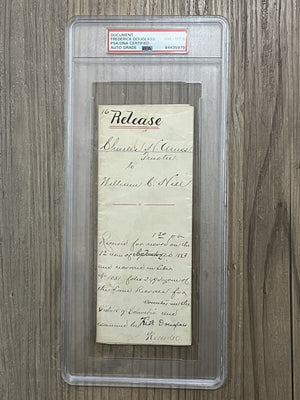 DOCUMENT
FREDERICK DOUGLASS
PSA/DNA CERTIFIED
AUTO GRADE
PSA
84435979
16
Release
Charles
Trustee
to
William C. Hill
1 30 P.M
Received for record on the
12 day of September A.D. 1883
and recorded in Liber
No 1051 folio
of the Land Records for
County in the
District of Columbia and
examined by Fredk Douglass
Recorder